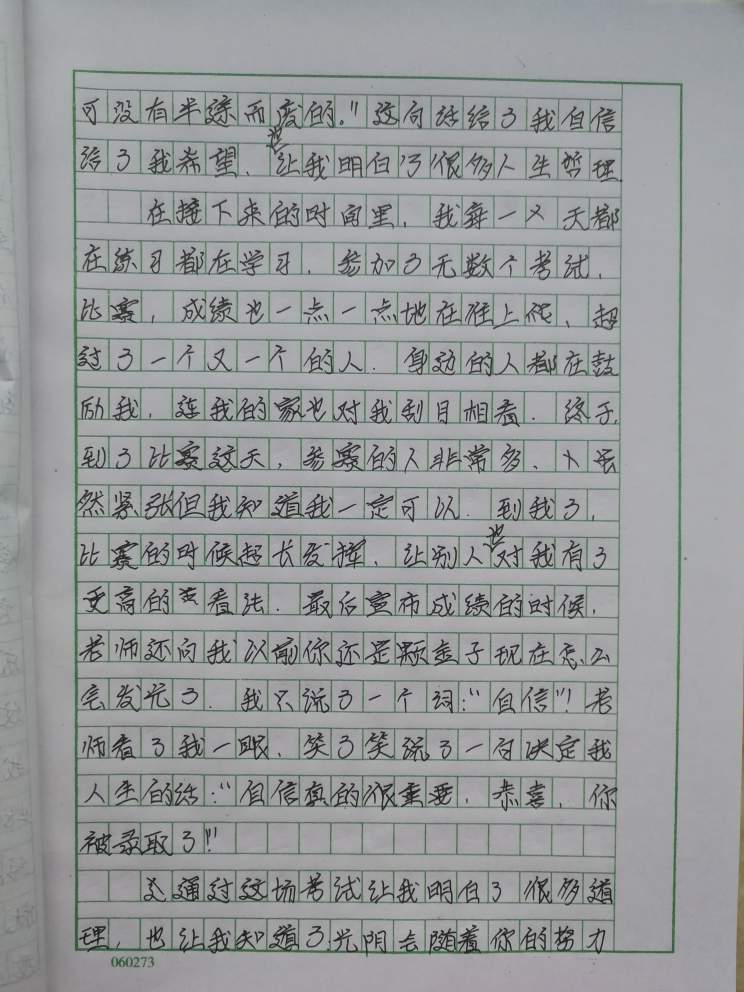 可没有半途而废的。”这句话给了我自信
给了我希望、也让我明白了很多人生哲理.
在接下来的时间里，我每一天都
在练习都在学习，参加了无数个考试，
比赛，成绩也一点一点地在往上爬、超
过了一个又一个的人.身边的人都在鼓
励我，连我的家也对我刮目相看.终于
到了比赛这天，参赛的人非常多、虽
然紧张但我知道我一定可以.到我了，
比赛的时候超长发挥，让别人也对我有了
更高的看法.最后宣布成绩的时候，
老师还问我以前你还是颗金子现在怎么
会发光了.我只说了一个词：“自信”！老
师看了我一眼、笑了笑说了一句决定我
人生的话：“自信真的很重要，恭喜，你
被录取了！”
通过这场考试让我明白了很多道
理，也让我知道了光阴会随着你的努力
060273